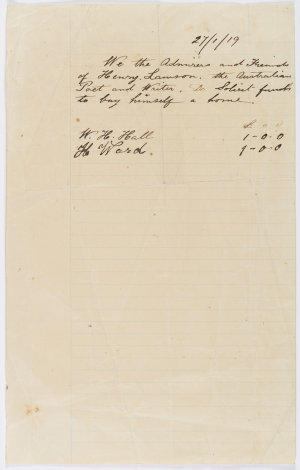 27/1/19
We the Admirers and Friends
of Henry Lawson. the Australian
Poet and Writer. to Solicit funds
to buy himself a home.
£ s d
W. H. Hall 1-0-0
H Ward. 1-0-0